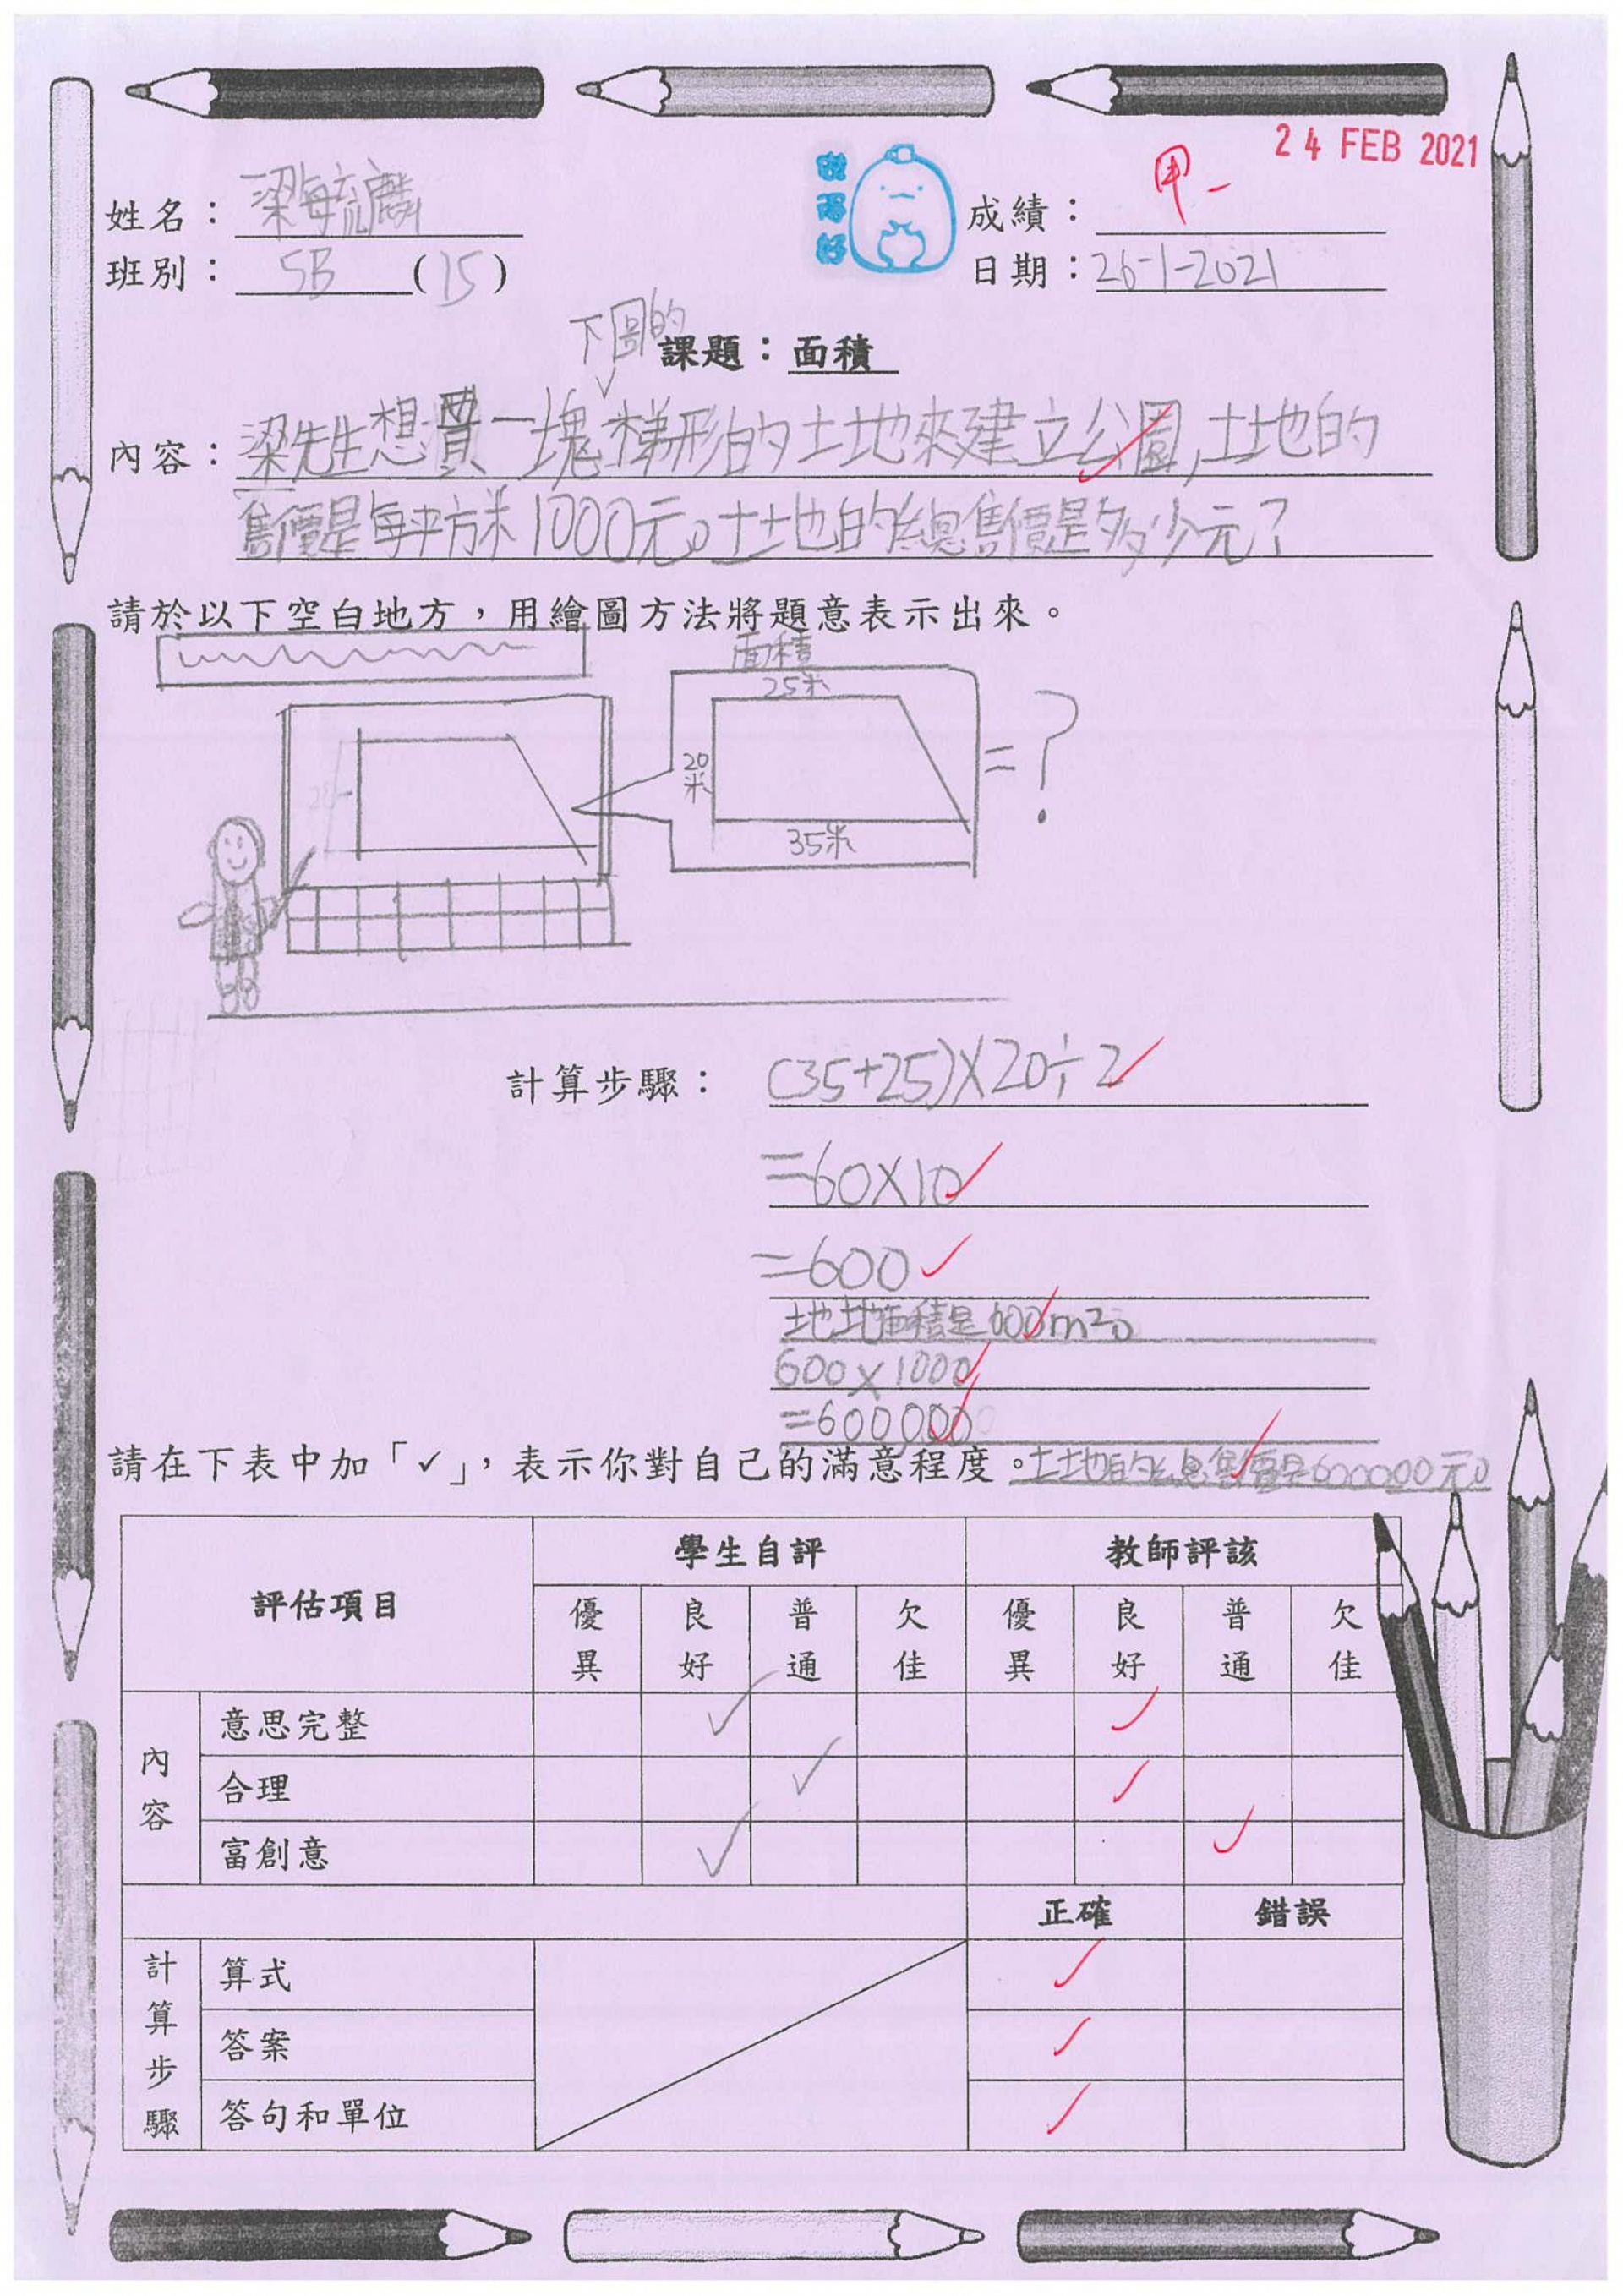 24 FEB 2021
做得好
姓名：梁
成績：甲-
班別：5B(15)
日期：26-1-2021
課題：面積
下圖的
內容：梁先生想買一塊梯形的土地來建立公園,土地的
售價是每平方米1000元。土地的總售價是多少元?
請於以下空白地方，用繪圖方法將題意表示出來。
面積
25米
20米
35米
=?
計算步驟：(35+25)×20÷2
=60×10
=600
土地面積是600m²。
600×1000
=600000
請在下表中加「✓」，表示你對自己的滿意程度。土地的總售價是600000元。
評估項目 學生自評 教師評該
優異 良好 普通 欠佳 優異 良好 普通 欠佳
內容
意思完整 ✓ ✓
合理 ✓ ✓
富創意 ✓ ✓
正確 錯誤
計算步驟
算式 ✓
答案 ✓
答句和單位 ✓